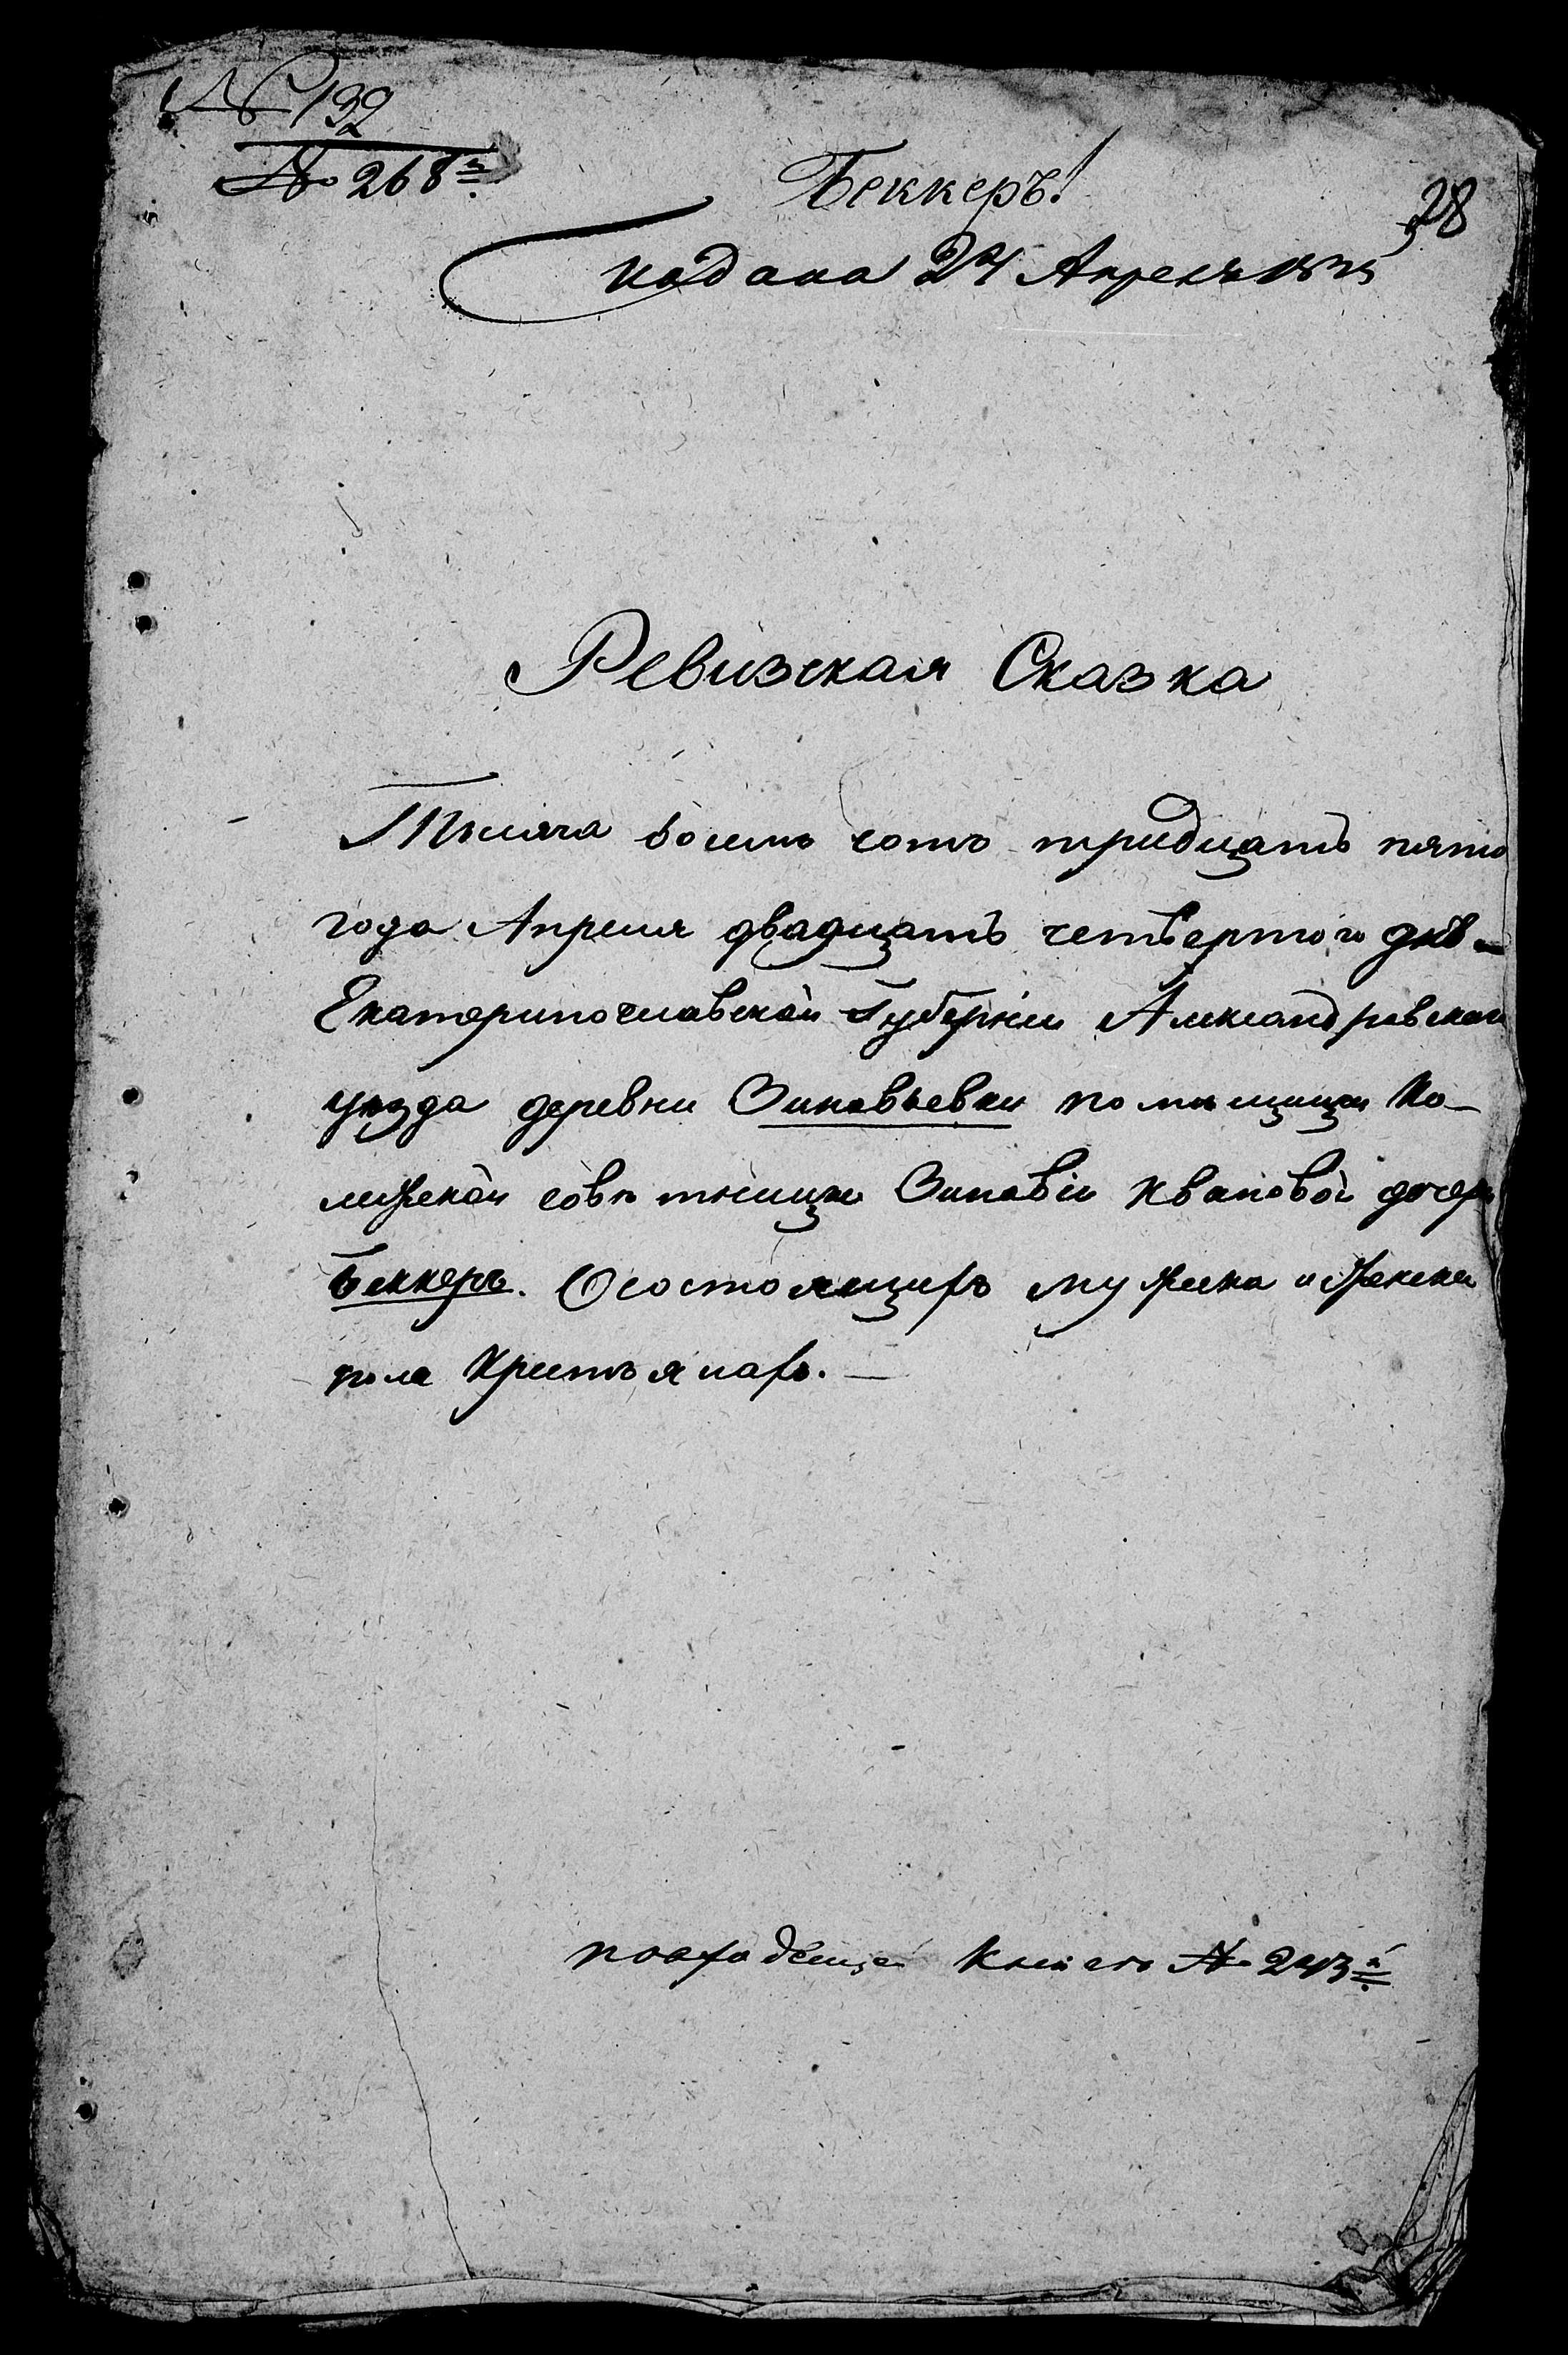 № 132
№ 268й
Беккеръ!
28
подана 24 Апреля 1835
Ревизская Сказка
Тысяча восемь сотъ тридцать пято
года Апреля двадцать четвертого дня
Екатеринославской Губерніи Александровскаго
уѣзда деревни Зиновьевки помѣщицы Ко-
лежской совѣтницы Зиновіи Ивановой дочери
Беккеръ. О состоящихъ мужска и женска
пола крестьянахъ.
по входящей книге № 243й